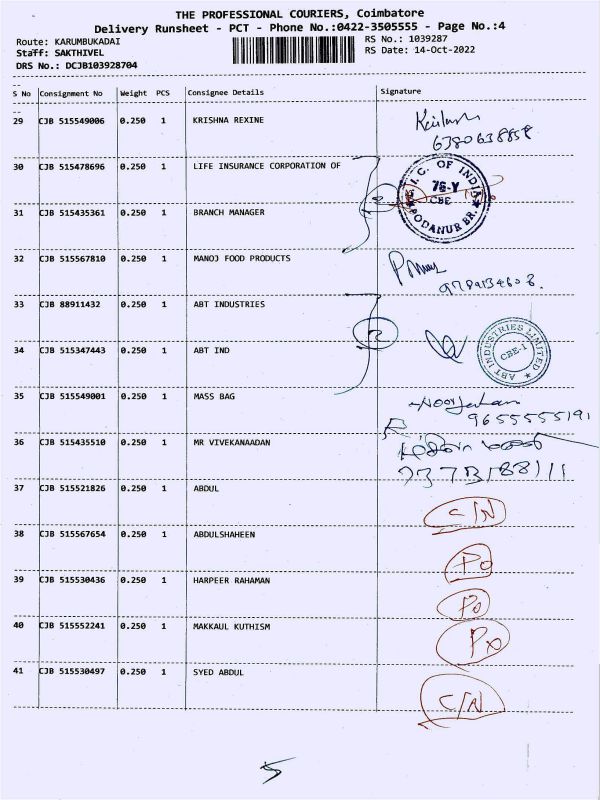 THE PROFESSIONAL COURIERS, Coimbatore
Delivery Runsheet - PCT - Phone No.:0422-3505555 - Page No.:4
Route: KARUMBUKADAI RS No.: 1039287
Staff: SAKTHIVEL RS Date: 14-Oct-2022
DRS No.: DCJB103928704
S No Consignment No Weight PCS Consignee Details Signature
29 CJB 515549006 0.250 1 KRISHNA REXINE
6380638858
30 CJB 515478696 0.250 1 LIFE INSURANCE CORPORATION OF
L.I.C. OF INDIA
76-Y
CBE
PODANUR BR.
2
31 CJB 515435361 0.250 1 BRANCH MANAGER
32 CJB 515567810 0.250 1 MANOJ FOOD PRODUCTS
33 CJB 88911432 0.250 1 ABT INDUSTRIES
2
ABT INDUSTRIES LIMITED
CBE-1
34 CJB 515347443 0.250 1 ABT IND
35 CJB 515549001 0.250 1 MASS BAG
Noorjahan
9655555191
36 CJB 515435510 0.250 1 MR VIVEKANAADAN
37 CJB 515521826 0.250 1 ABDUL
C/N
38 CJB 515567654 0.250 1 ABDULSHAHEEN
PO
39 CJB 515530436 0.250 1 HARPEER RAHAMAN
PO
40 CJB 515552241 0.250 1 MAKKAUL KUTHISM
41 CJB 515530497 0.250 1 SYED ABDUL
C/N
5